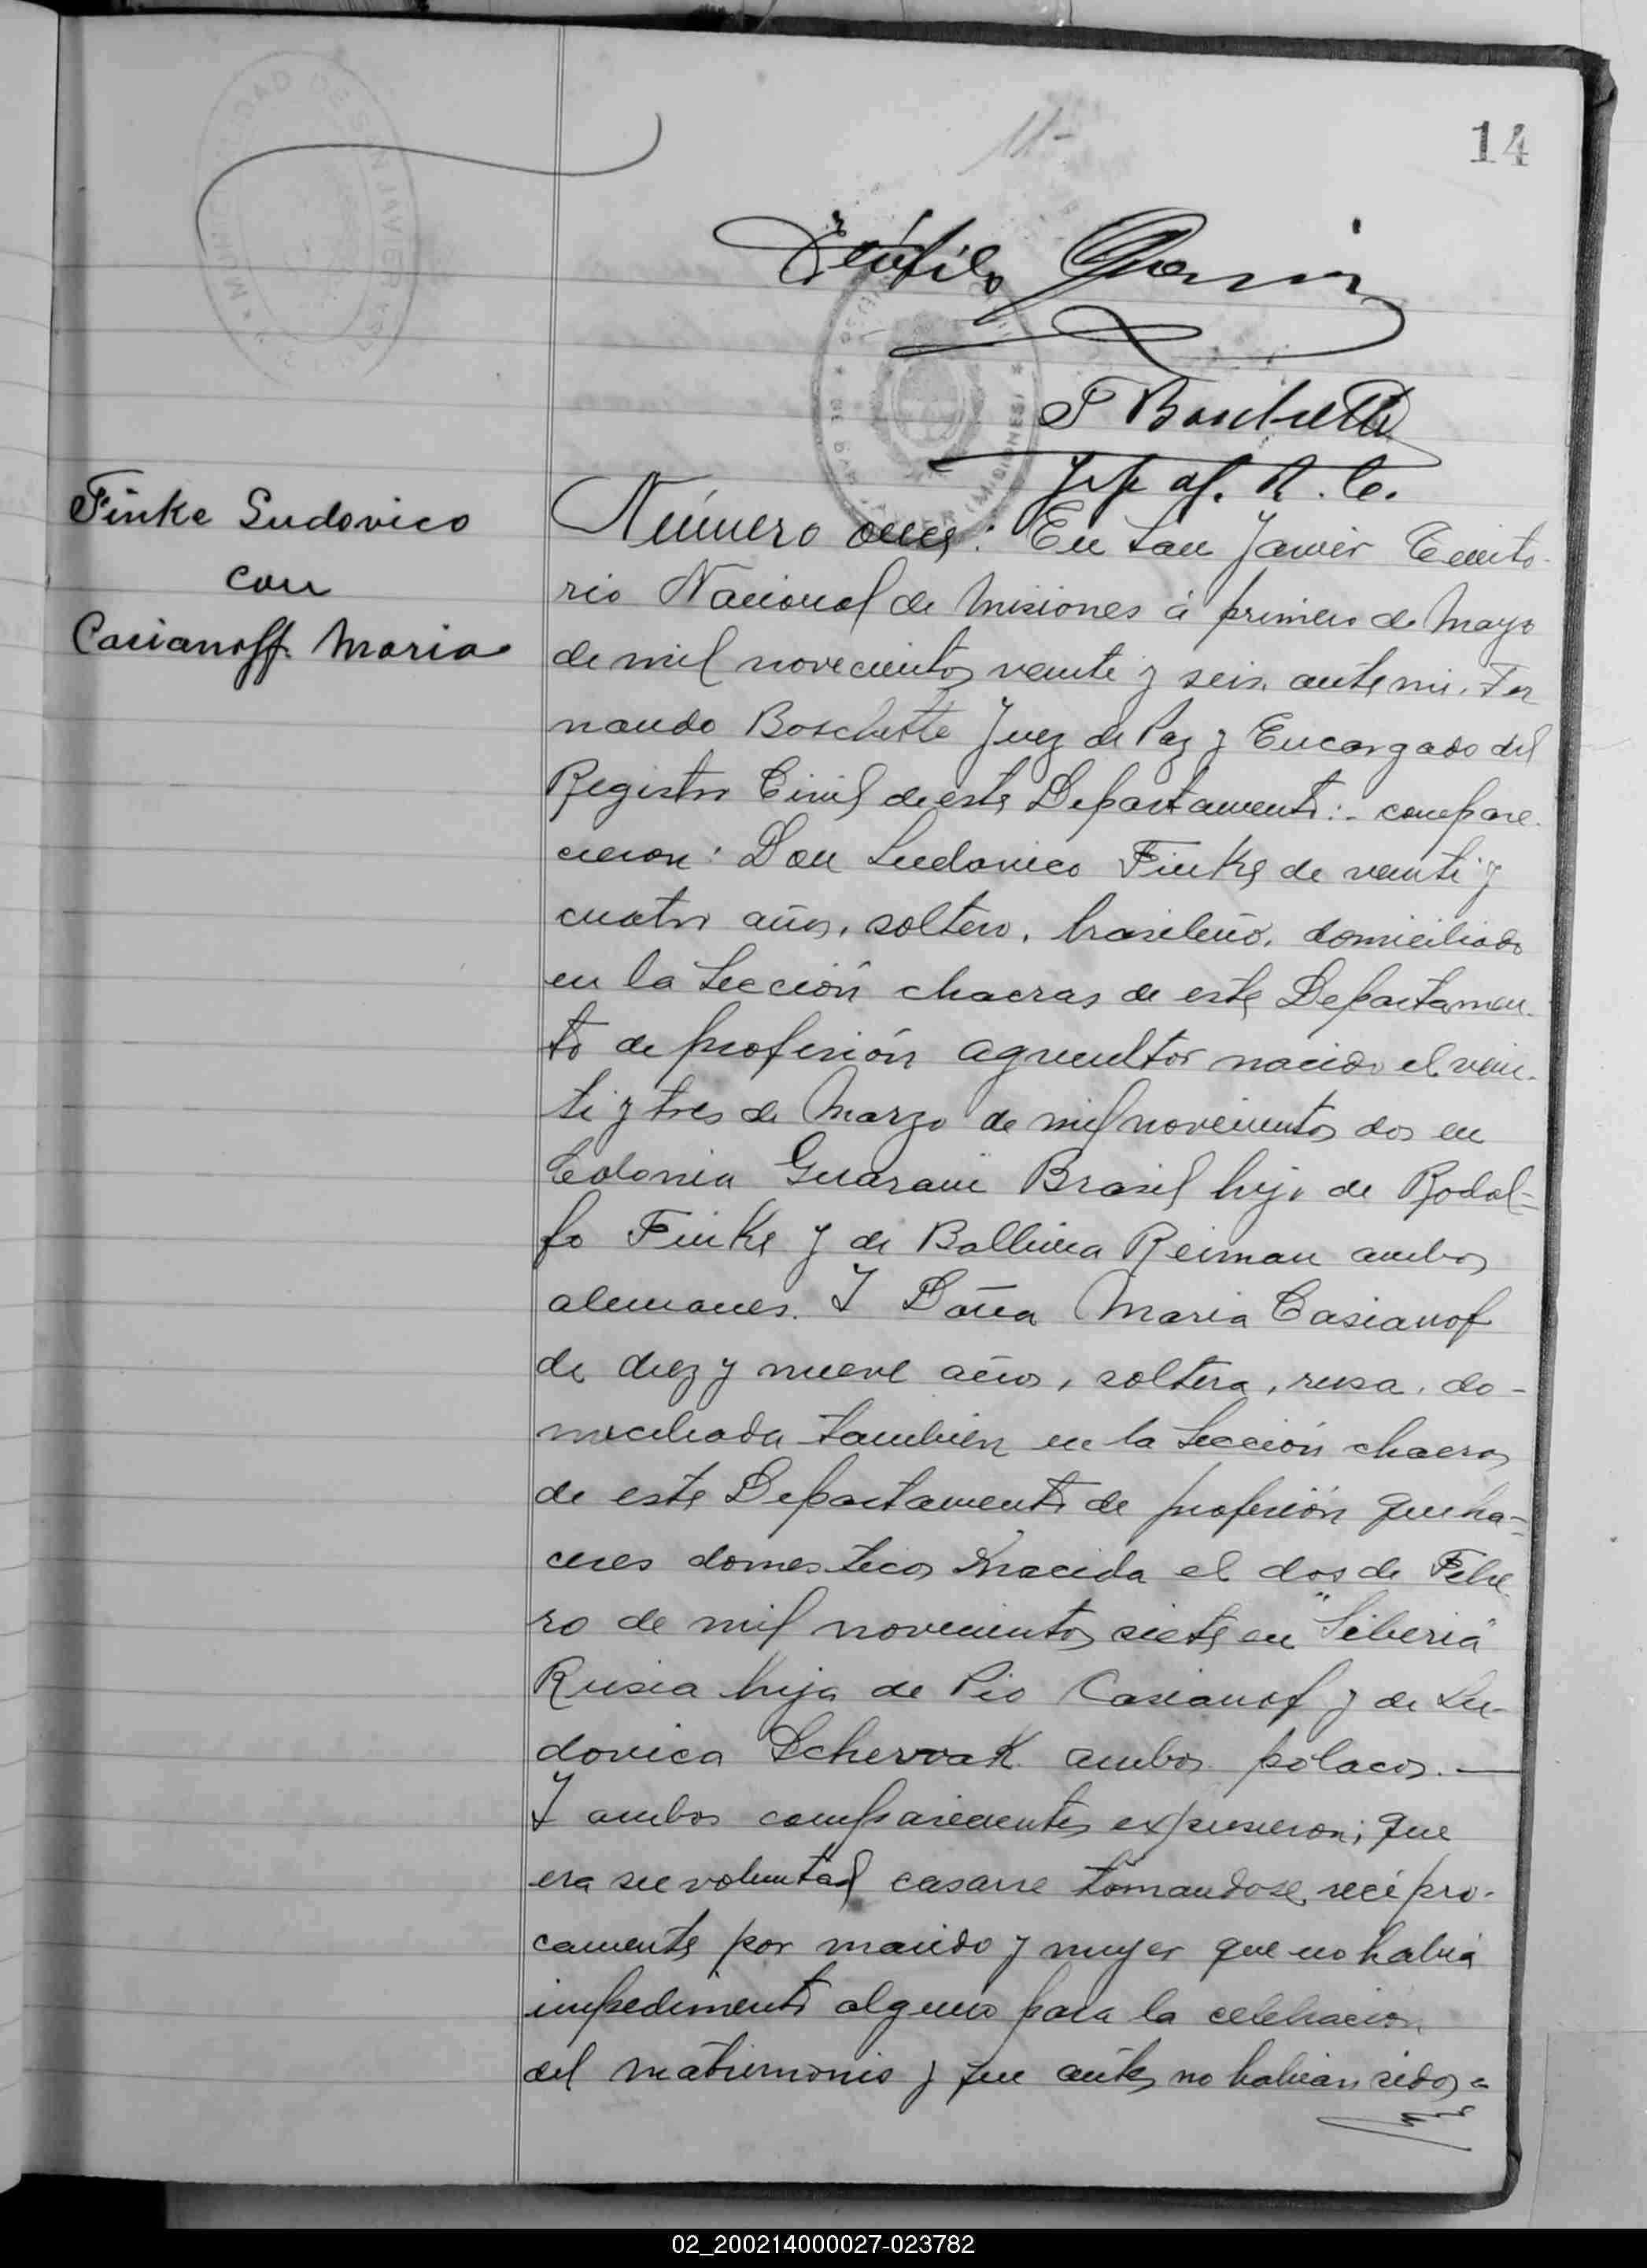 14
11-
F Boschetti
Jefe of. R. C.
Finke Ludovico
con
Casianoff Maria
Número once: En San Javier Territo-
rio Nacional de Misiones á primero de Mayo
de mil novecientos veinte y seis, ante mi, Fer
nando Boschette Juez de Paz y Encargado del
Registro Civil de este Departamento:- compare-
cieron: Don Ludovico Finke de veinte y
cuatro años, soltero, brasileño, domiciliado
en la Sección chacras de este Departamen-
to de profesión agricultor nacido el vein-
ti y tres de Marzo de mil novecientos dos en
Colonia Guarani Brasil hijo de Rodol=
fo Finke y de Ballina Reiman ambos
alemanes. Y Doña Maria Casianof
de diez y nueve años, soltera, rusa, do-
miciliada tambien en la Sección chacras
de este Departamento de profesión queha=
ceres domesticos nacida el dos de Febre-
ro de mil novecientos siete en "Siberia"
Rusia hija de Pio Casianof y de Lu-
dovica Schervak ambos polacos.—
Y ambos comparecientes expusieron; que
era su voluntad casarse tomandose reci pro-
camente por marido y mujer que no habia
impedimento alguno para la celebracion
del matrimonio y que antes no habian sido
MUNICIPALIDAD DE SAN JAVIER
(MISIONES)
02_200214000027-023782